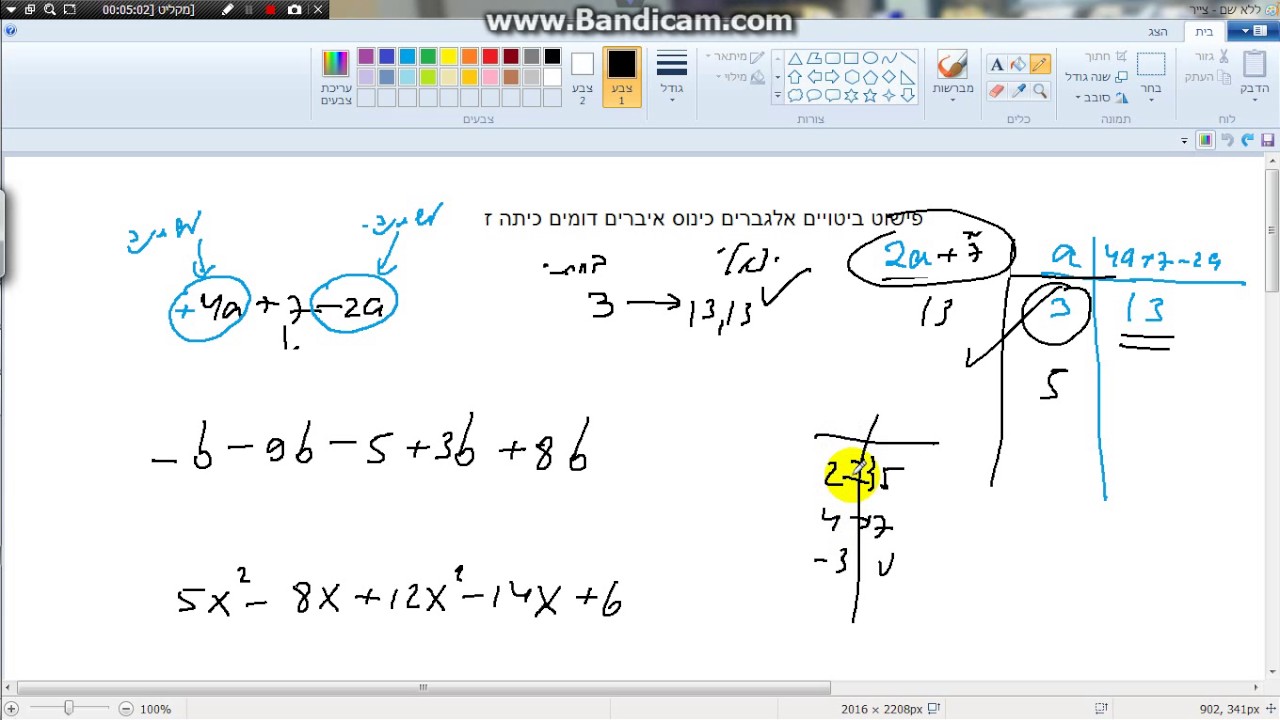 [מקליט] 00:05:02
www.Bandicam.com
ללא שם - צייר
בית
הצג
הדבק
גזור
העתק
לוח
בחר
חתוך
שנה גודל
סובב
תמונה
כלים
מברשות
מיתאר
מילוי
צורות
גודל
צבע 1
צבע 2
עריכת צבעים
צבעים
פישוט ביטויים אלגברים כינוס איברים דומים כיתה ז
+4a + 7 - 2a
3 → 13,13
2a + 7
a
4a+7-2a
13
3
13
5
-b - 9b - 5 + 3b + 8b
4 → 7
-3
5x² - 8x + 12x² - 14x + 6
100%
2016 × 2208px
902, 341px